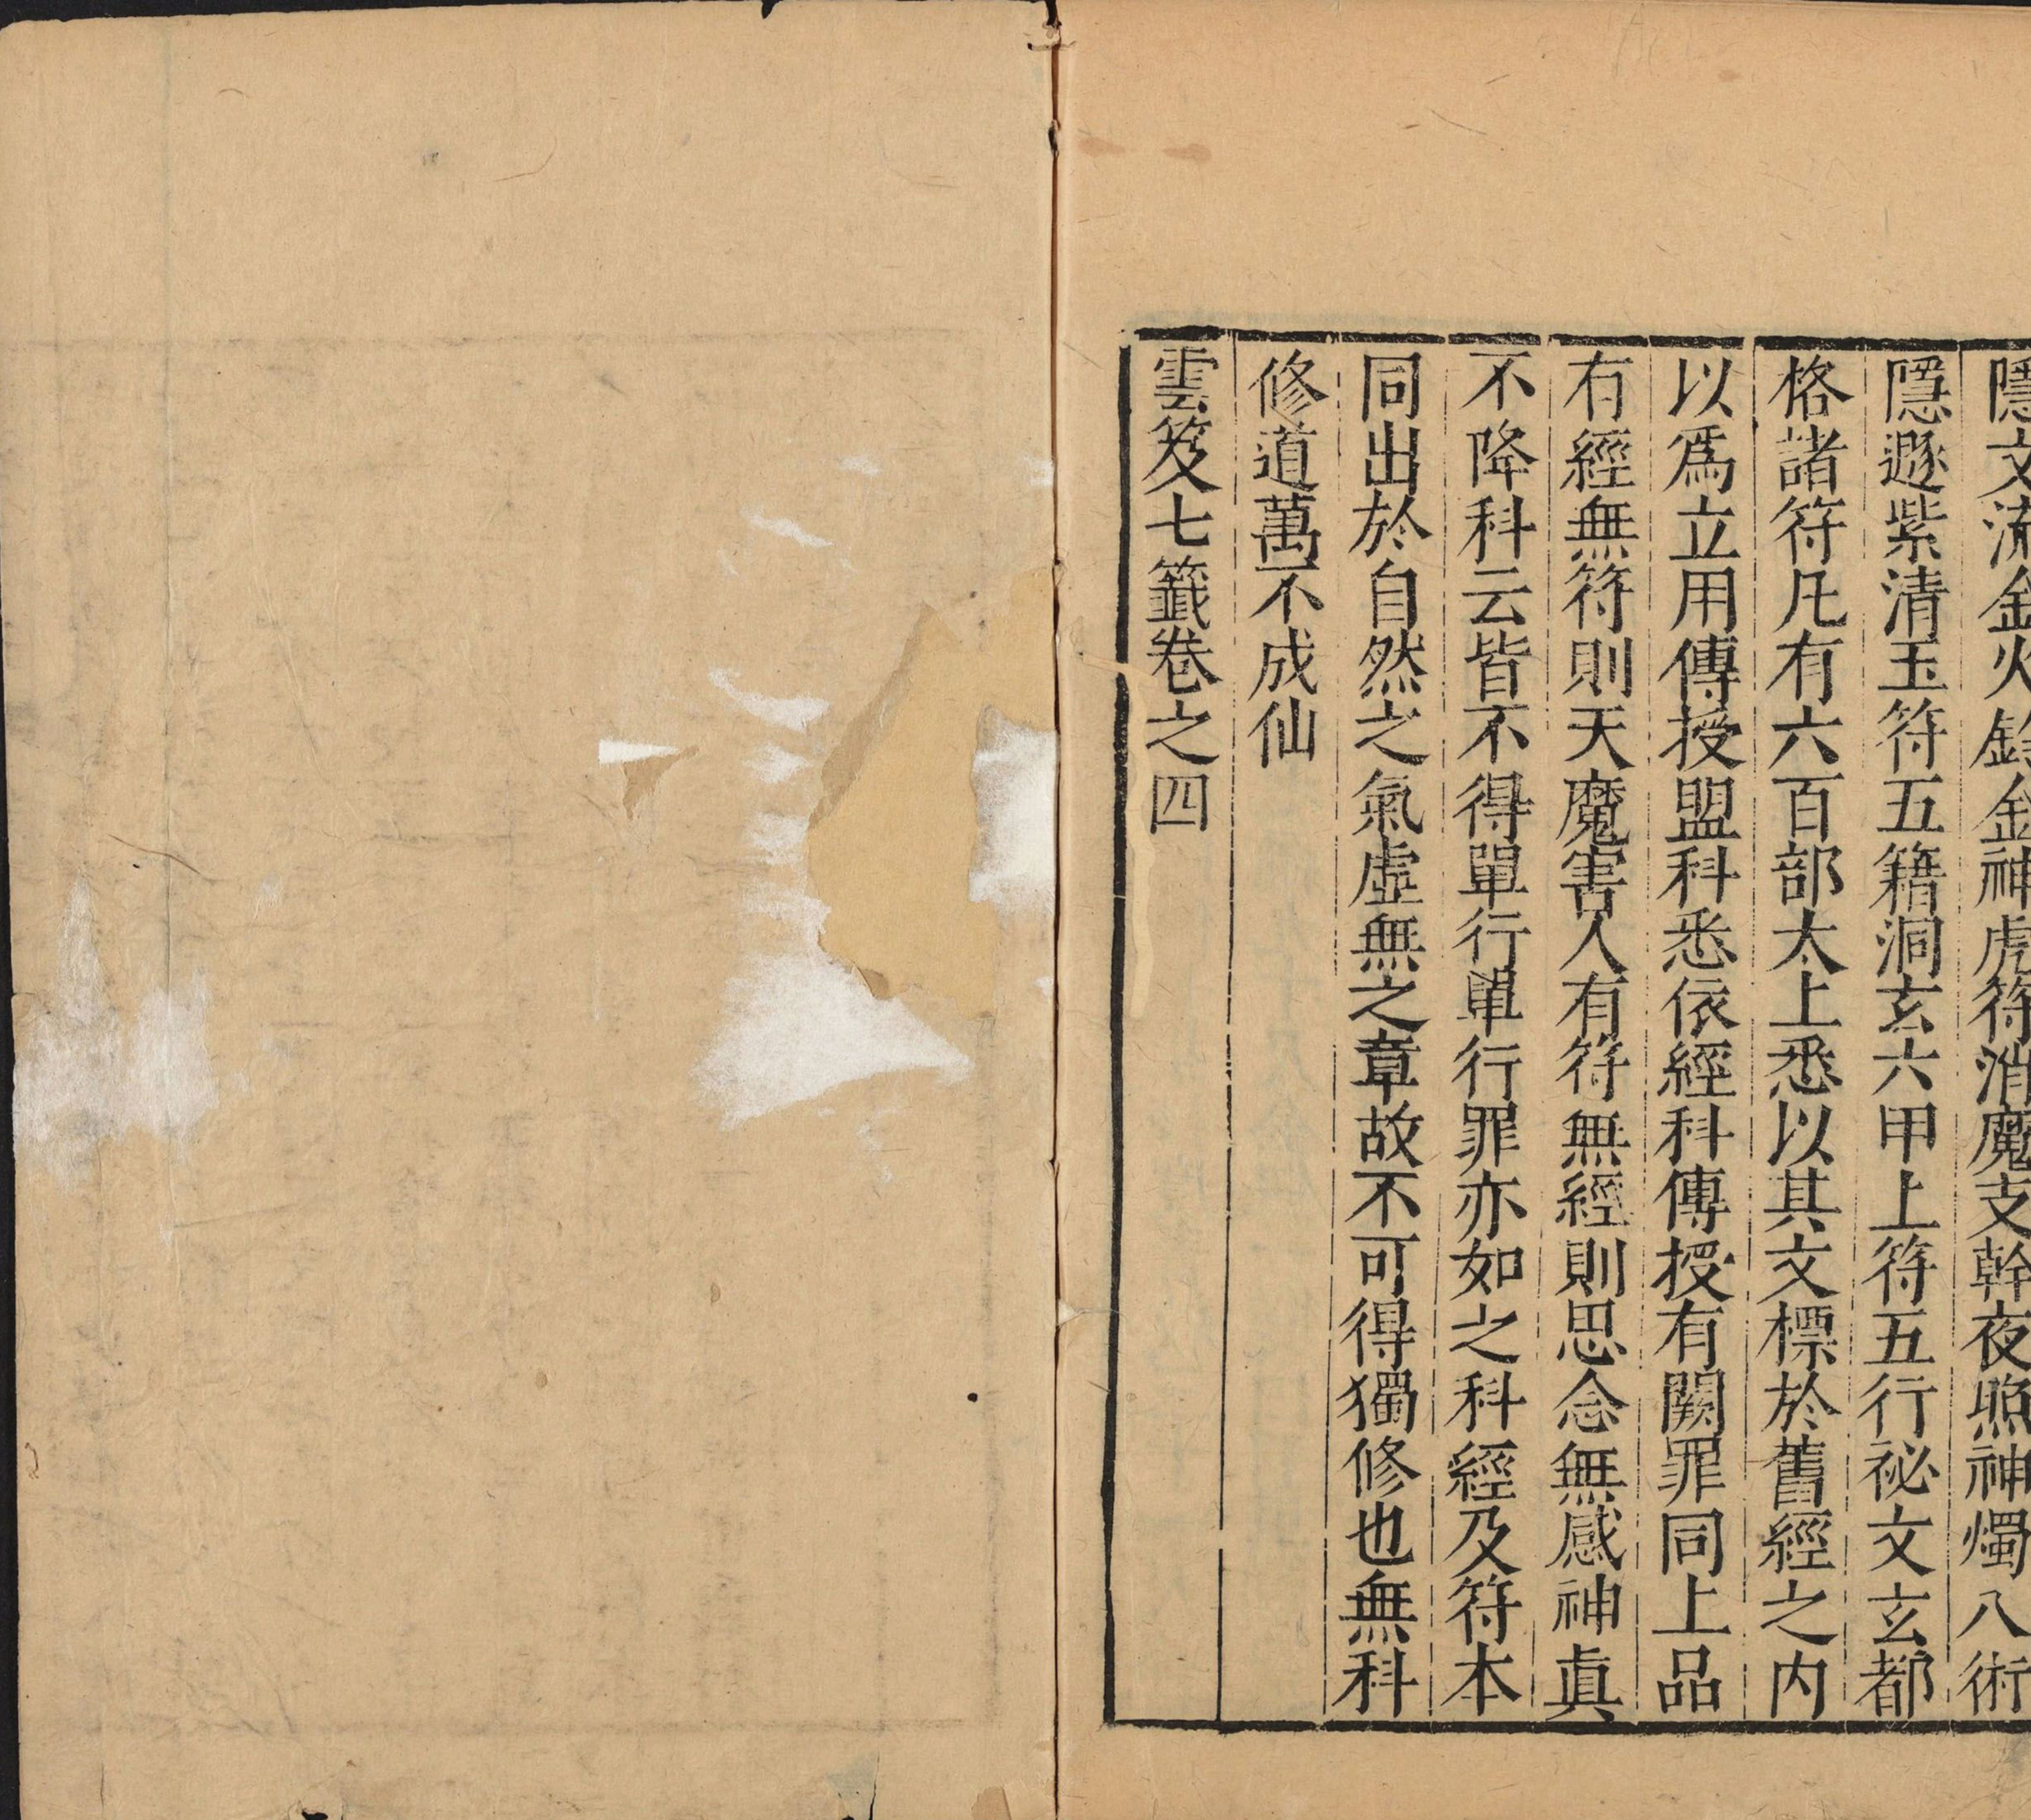 隱文流金火鈴金神虎符消魔支幹夜照神燭八術
隱遯紫清玉符五籍洞玄六甲上符五行祕文玄都
格諸符凡有六百部太上悉以其文標於舊經之内
以爲立用傳授盟科悉依經科傳授有闕罪同上品
有經無符則天魔害人有符無經則思念無感神眞
不降科云皆不得單行單行罪亦如之科經及符本
同出於自然之氣虛無之章故不可得獨修也無科
修道萬不成仙
雲笈七籤卷之四